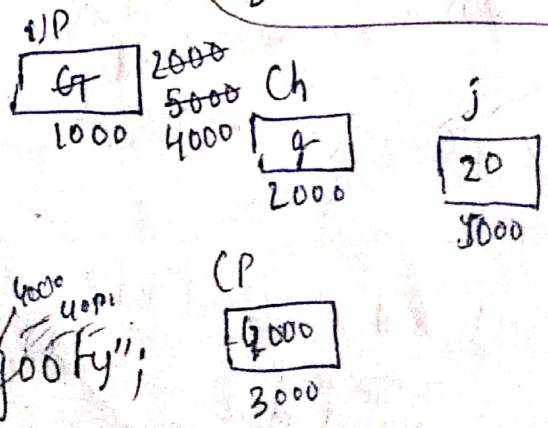 VP
G 2000
5000
1000 4000
Ch
g
2000
j
20
5000
4000
4001
goofy";
CP
4000
3000